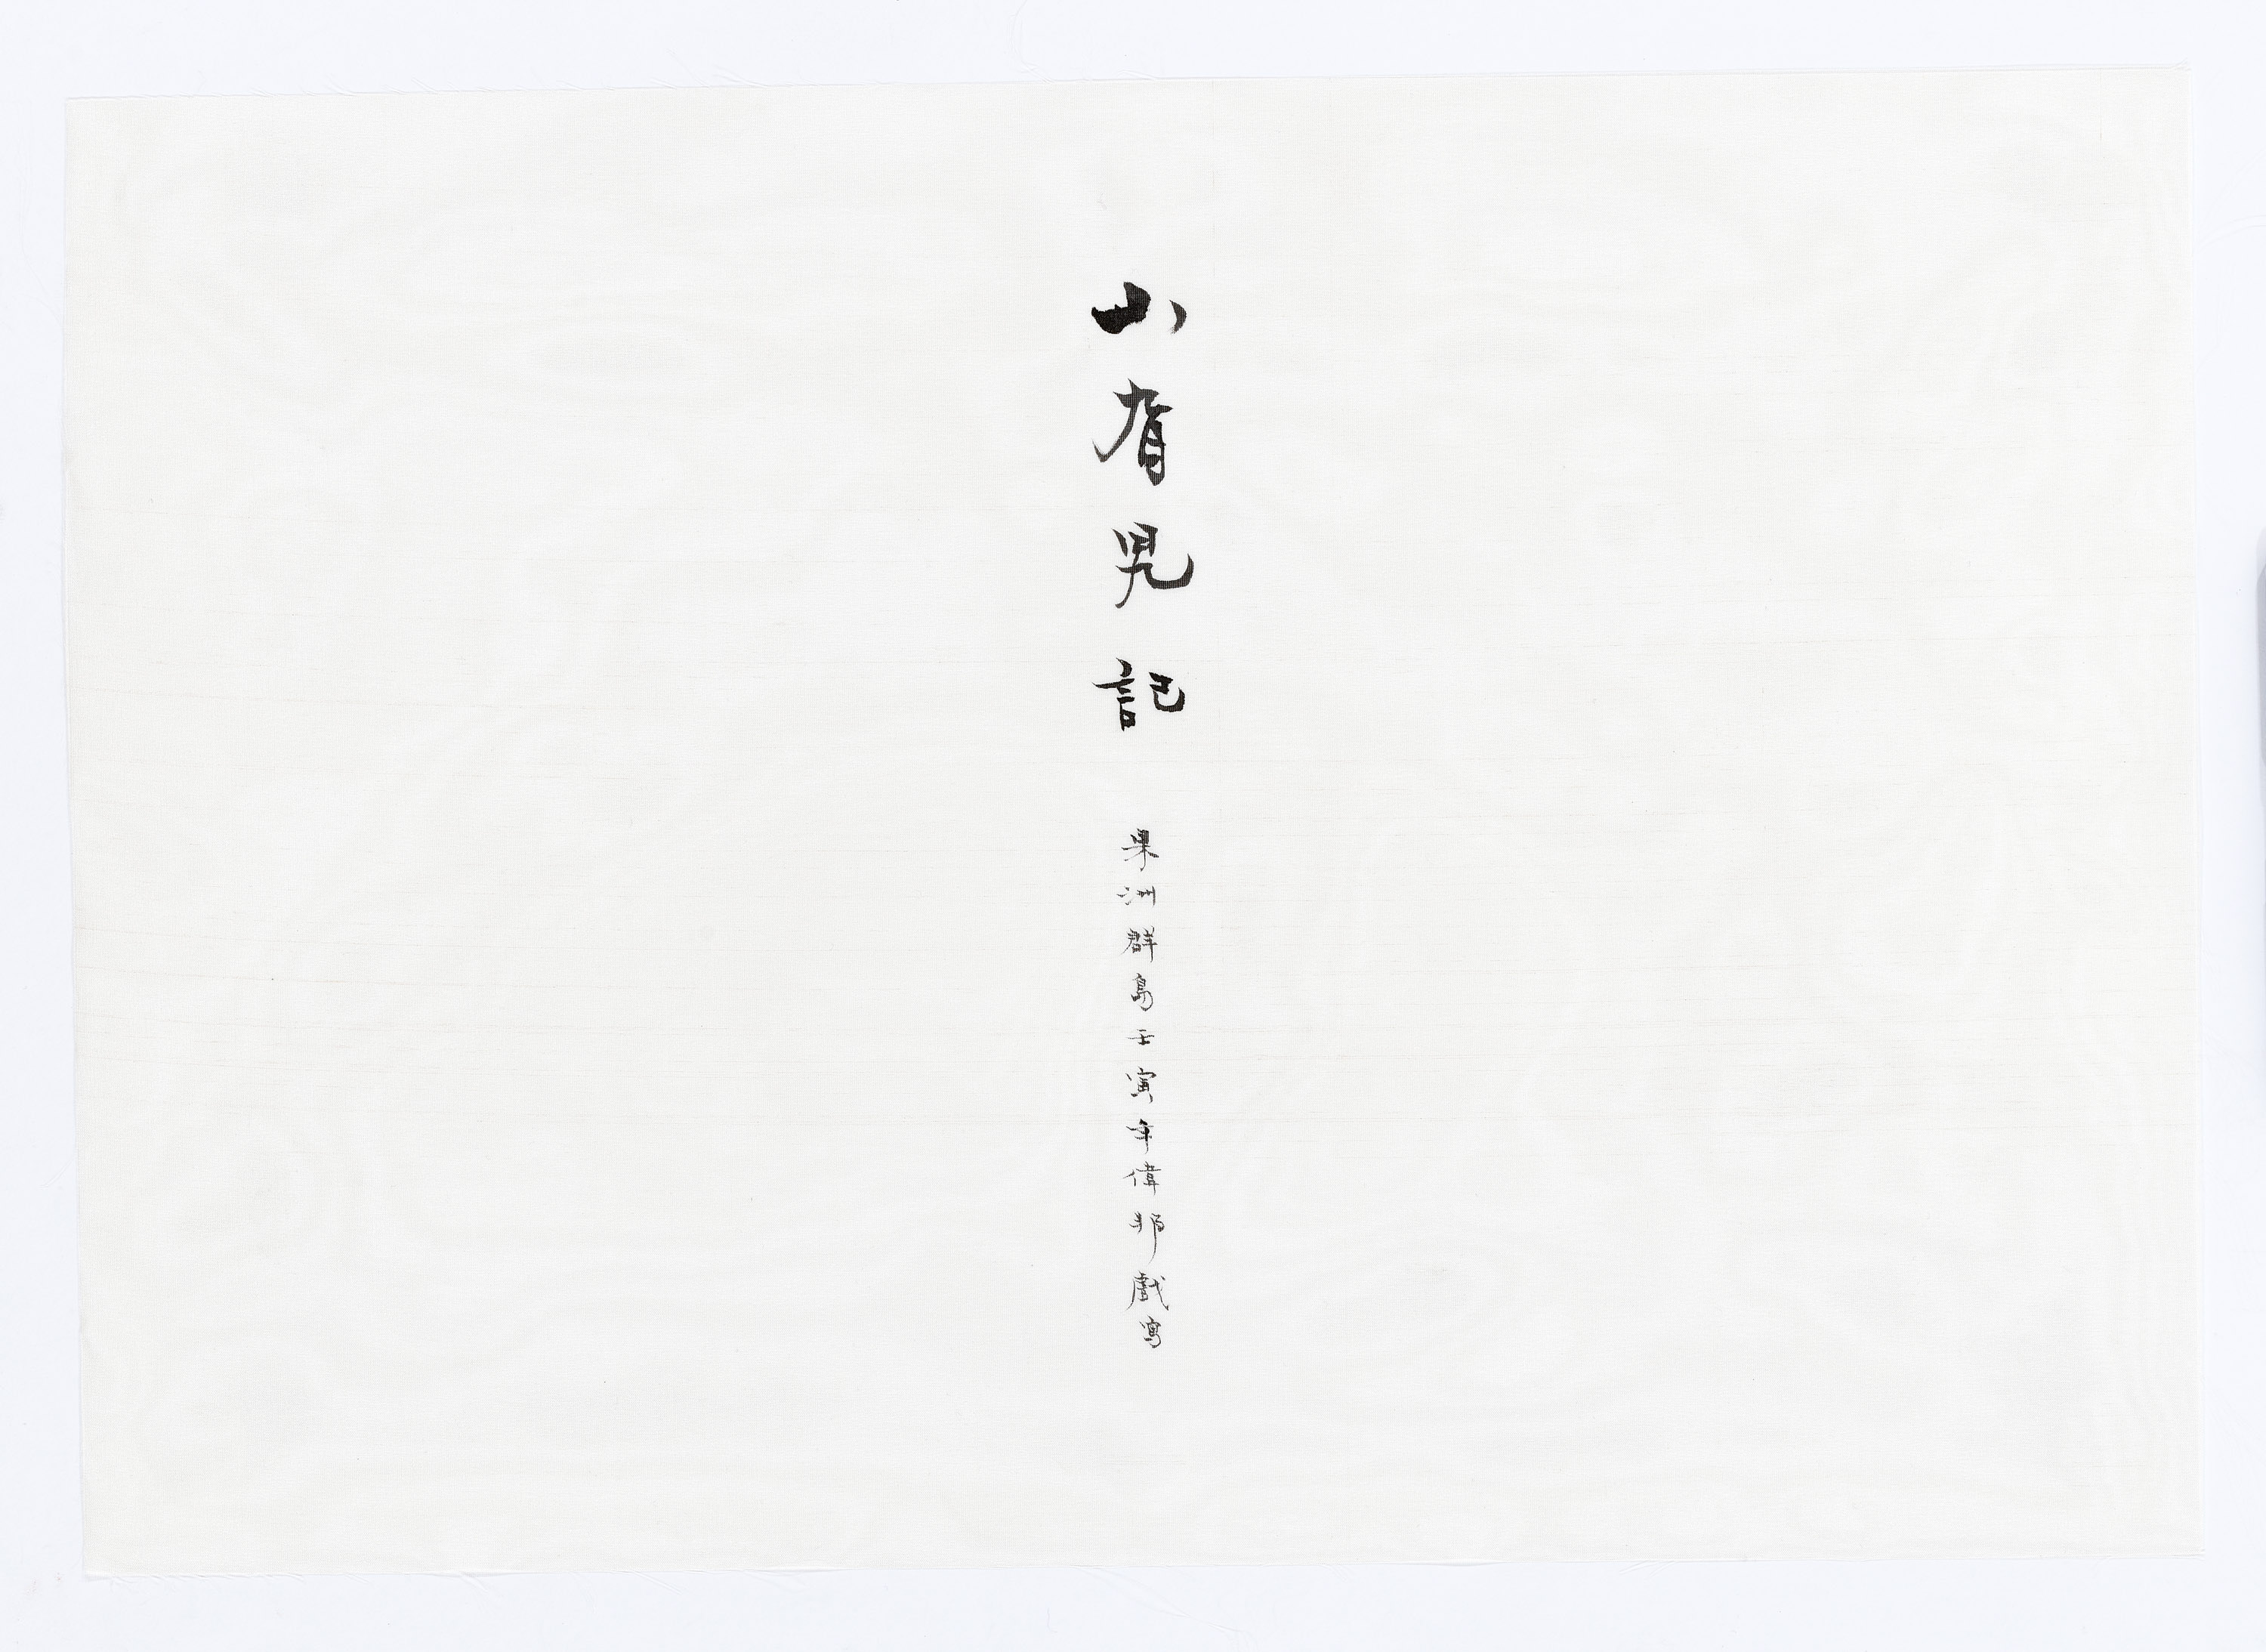 山有見記
果洲群島壬寅年偉邦戲寫